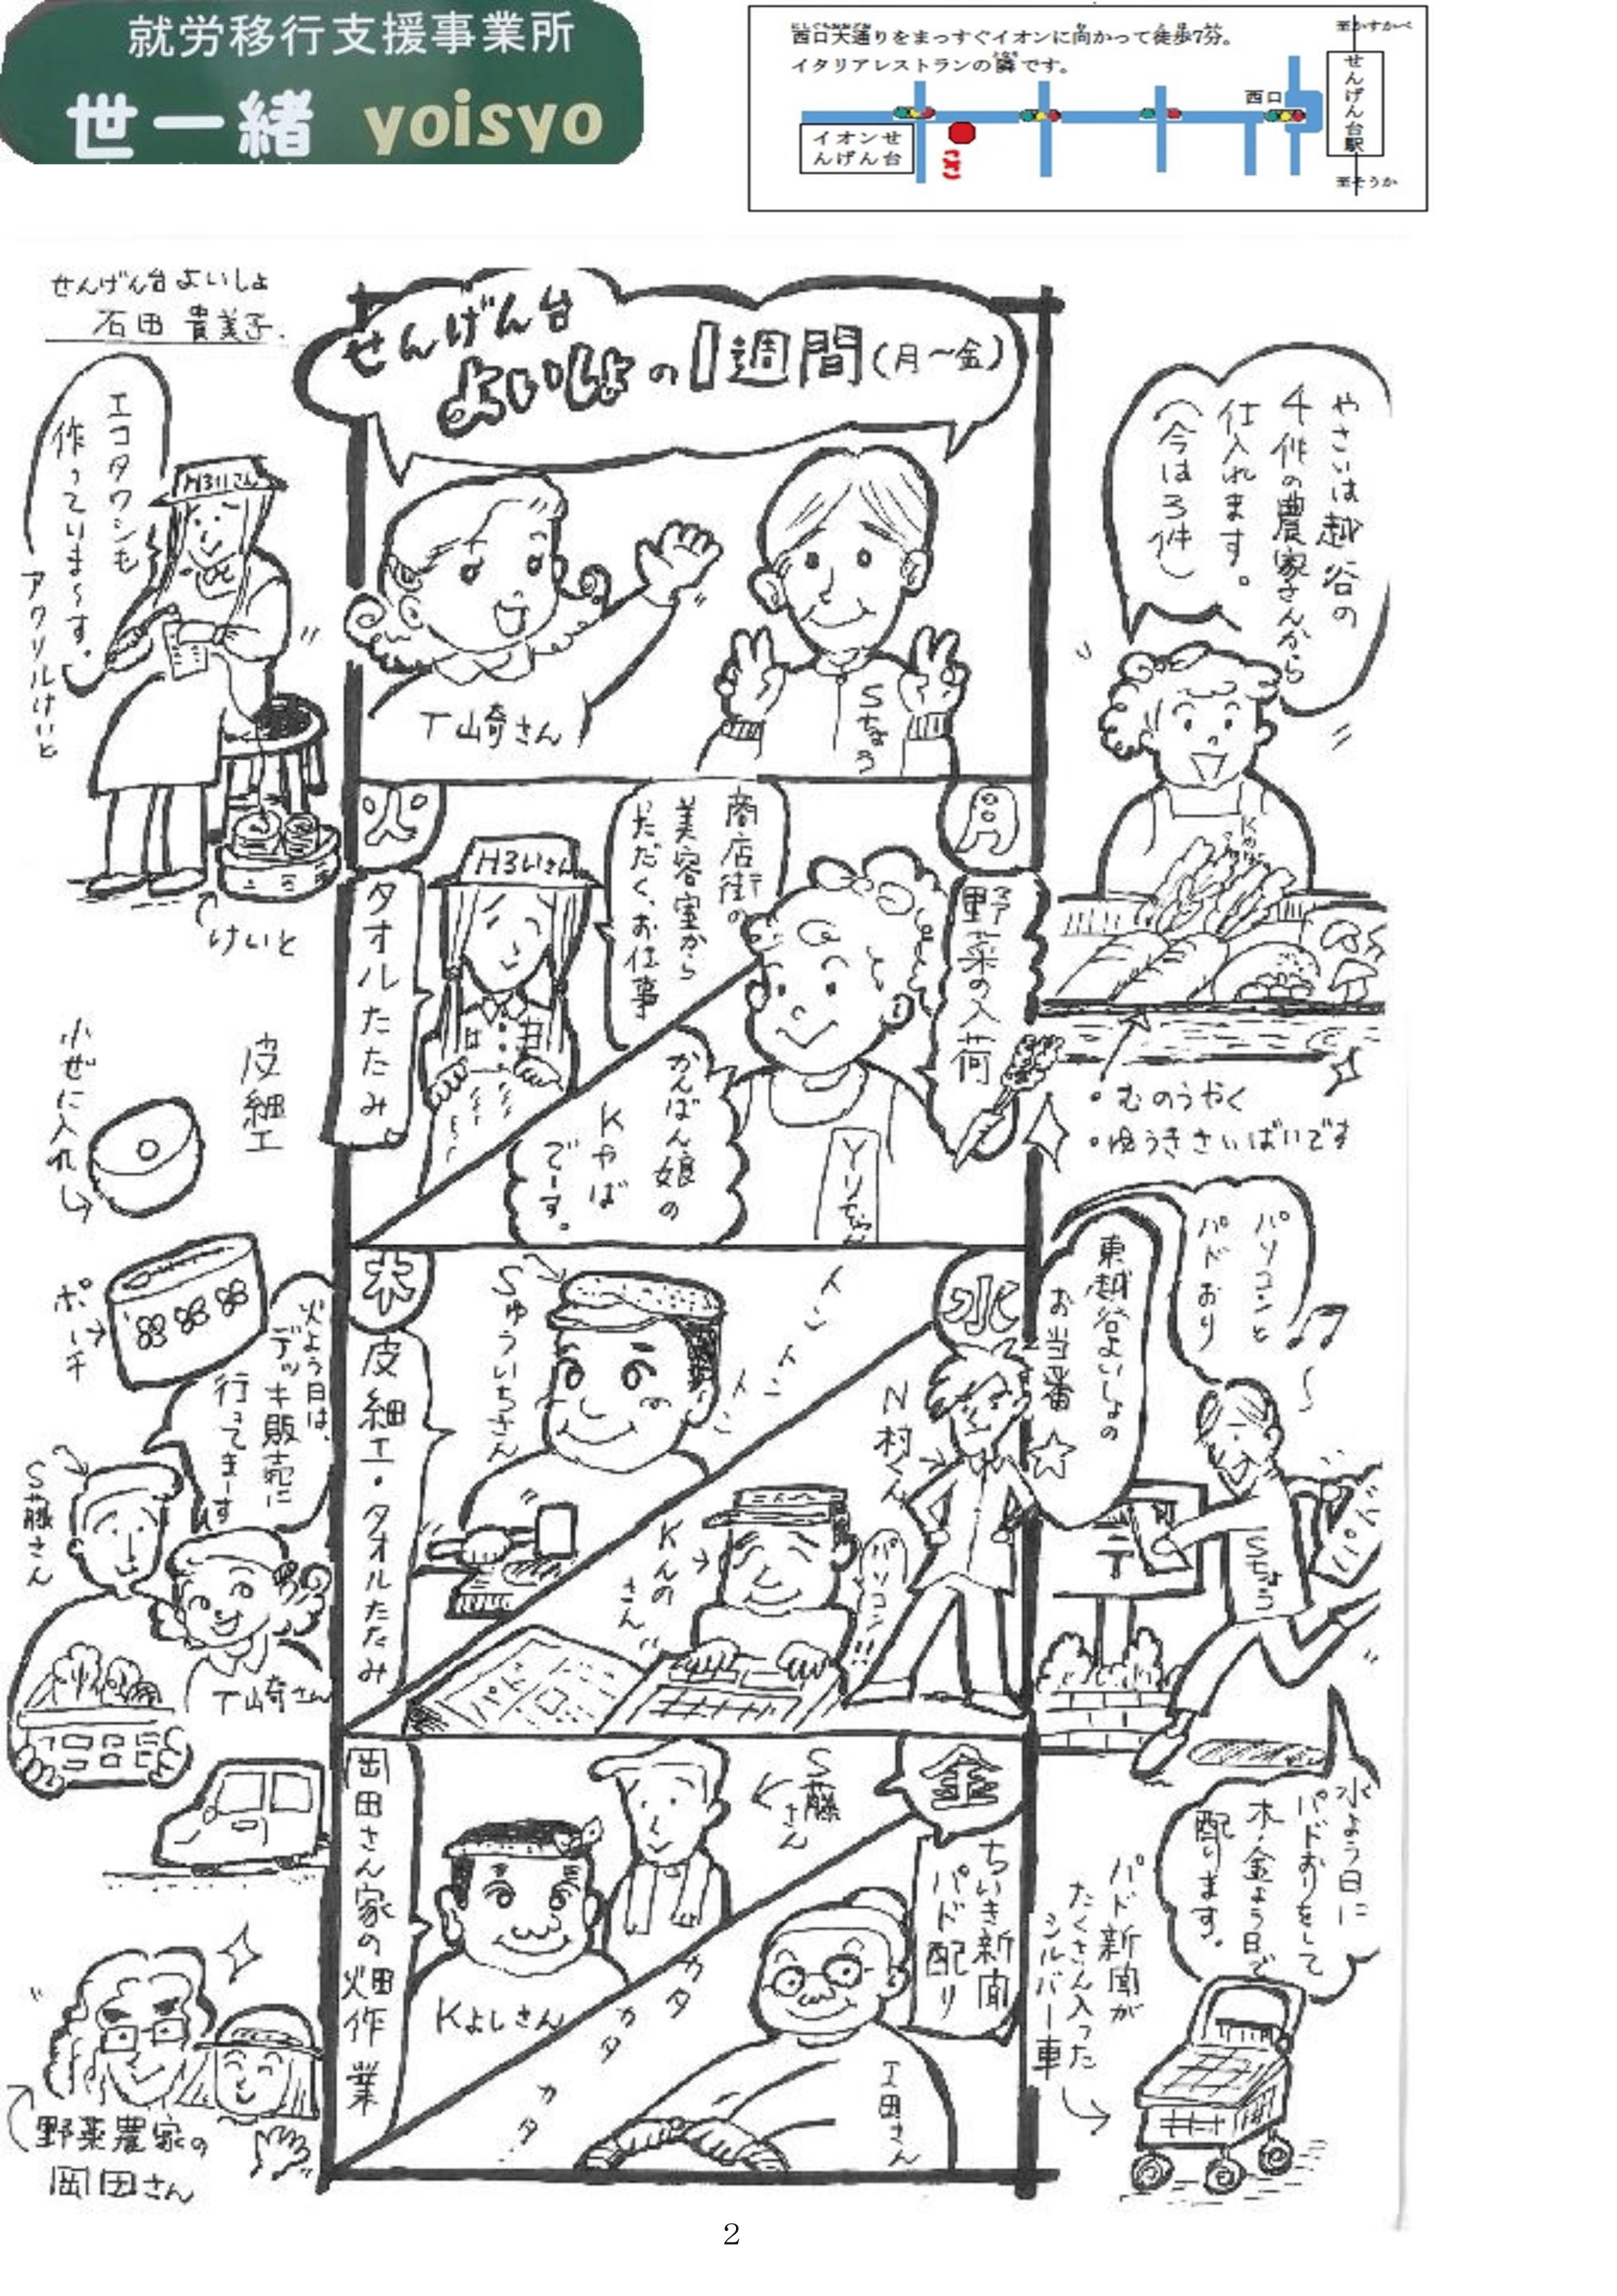 就労移行支援事業所
世一緒 yoisyo
西口大通りをまっすぐイオンに向かって徒歩7分。
イタリアレストランの隣です。
至かすかべ
せんげん台駅
西口
至そうか
イオンせ
んげん台
ここ
せんげん台よいしょ
石田 貴美子
せんげん台
よいしょの1週間(月〜金)
T山奇さん
Sちょう
エコタワシも
作っていま〜す。
アクリルけいと
H3いさん
けいと
やさいは越谷の
4件の農家さんから
仕入れます。
(今は3件)
・むのうやく
・ゆうきさいばいです
月
野菜の入荷
かんばん娘の
Kやば
でーす。
Yりちゃん
火
タオルたたみ。
商店街の
美容室から
ただく、お仕事
H3いさん
皮細工
小ぜに入れ
ポーチ
火よう日は、
デッキ販売に
行ってまーす
S藤さん
T山奇さん
水
東越谷よいしょの
お当番☆
パソコンと
パドおり
Sちょう
N村くん
パソコン!!
Kんの
さん
パド
木
皮細工・タオルたたみ
Sゅういちさん
トントントン
金
ちいき新聞
パド配り
S藤
さん
岡田さん家の畑作業
Kよしさん
カタ
カタ
カタ
工田さん
水よう日に
パドおりをして
木・金よう日で
配ります。
パド新聞が
たくさん入った
シルバー車
野菜農家の
岡田さん
2